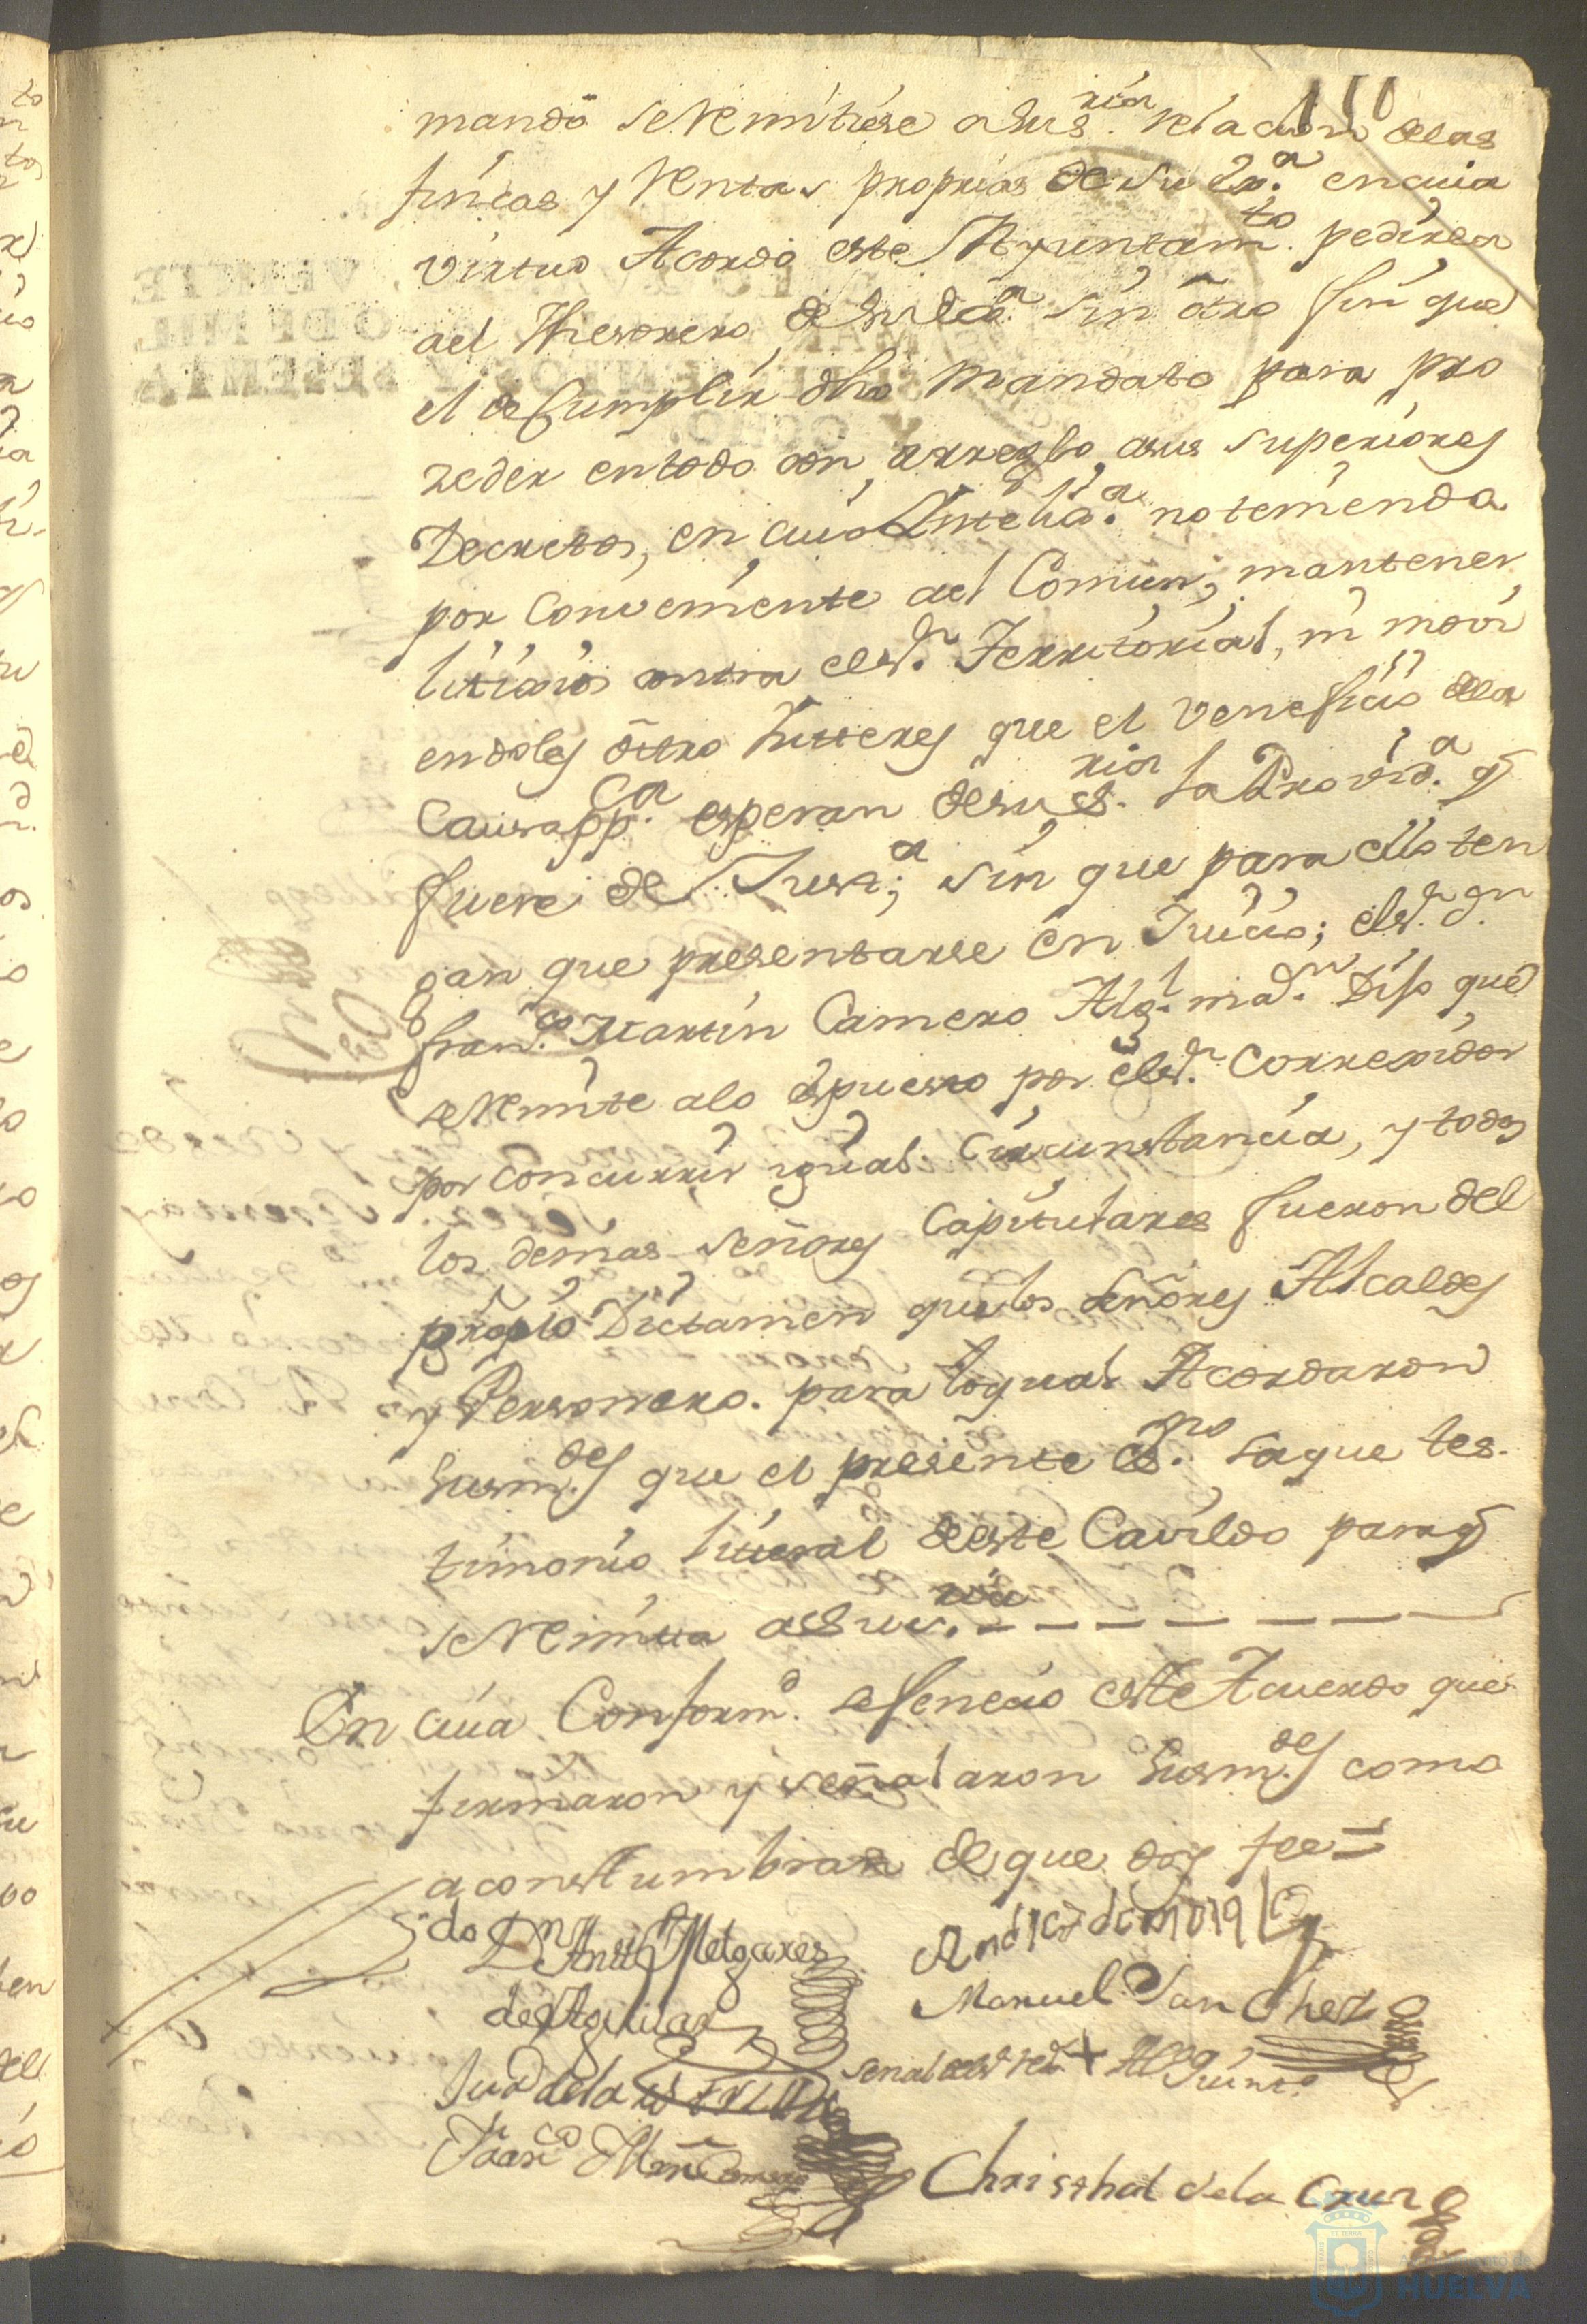 110
mandò se Remitiese a Sus.ria relacion de las
fincas y Rentas proprias de su Ex.a en cuia
virtud Acordò este Ayuntam.to pedirla
ael Thesorero de Su Ex.a sin otro fin que
el de Cumplir dho Mandato para pro
zeder en todo con arreglo asus superiores
Decretos, en cuia Intelig.a no teniendo
por Conveniente ael Comun, mantener
litixios contra el S.r Territorial, ni movi
endoles ôttro Ynteres que el veneficio dela
Causa pp.ca esperan de su S.ria la Provid.a q
fuere de Just.a; sin que para ello ten
gan que presentarse en Juicio; el S.r Dn
Fran.co Martin Camero Alg.l ma.r Dijo que
se Remite alo Espuesto por el S.r Correxidor
por concurrir igual Circunstancia, y todos
los demas señores Capitulares fueron del
proprio Dictamen que los señores Alcaldes
y Personero. para loqual Acordaron
Susm.des que el presente es.no saque tes-
timonio literal de este Cavildo para q
se Remita a Su S.ria
En cuia Conform.d se feneciò este Acuerdo que
firmaron y señalaron Susm.des como
acostumbran de que doy fee=
Dn Antt.o Melgarexo
de Aguilar
Manuel Sanchez
señal del S.r
Juo de la
Fran.co Mrn Camero
Christhal de la Cruz
HUELVA